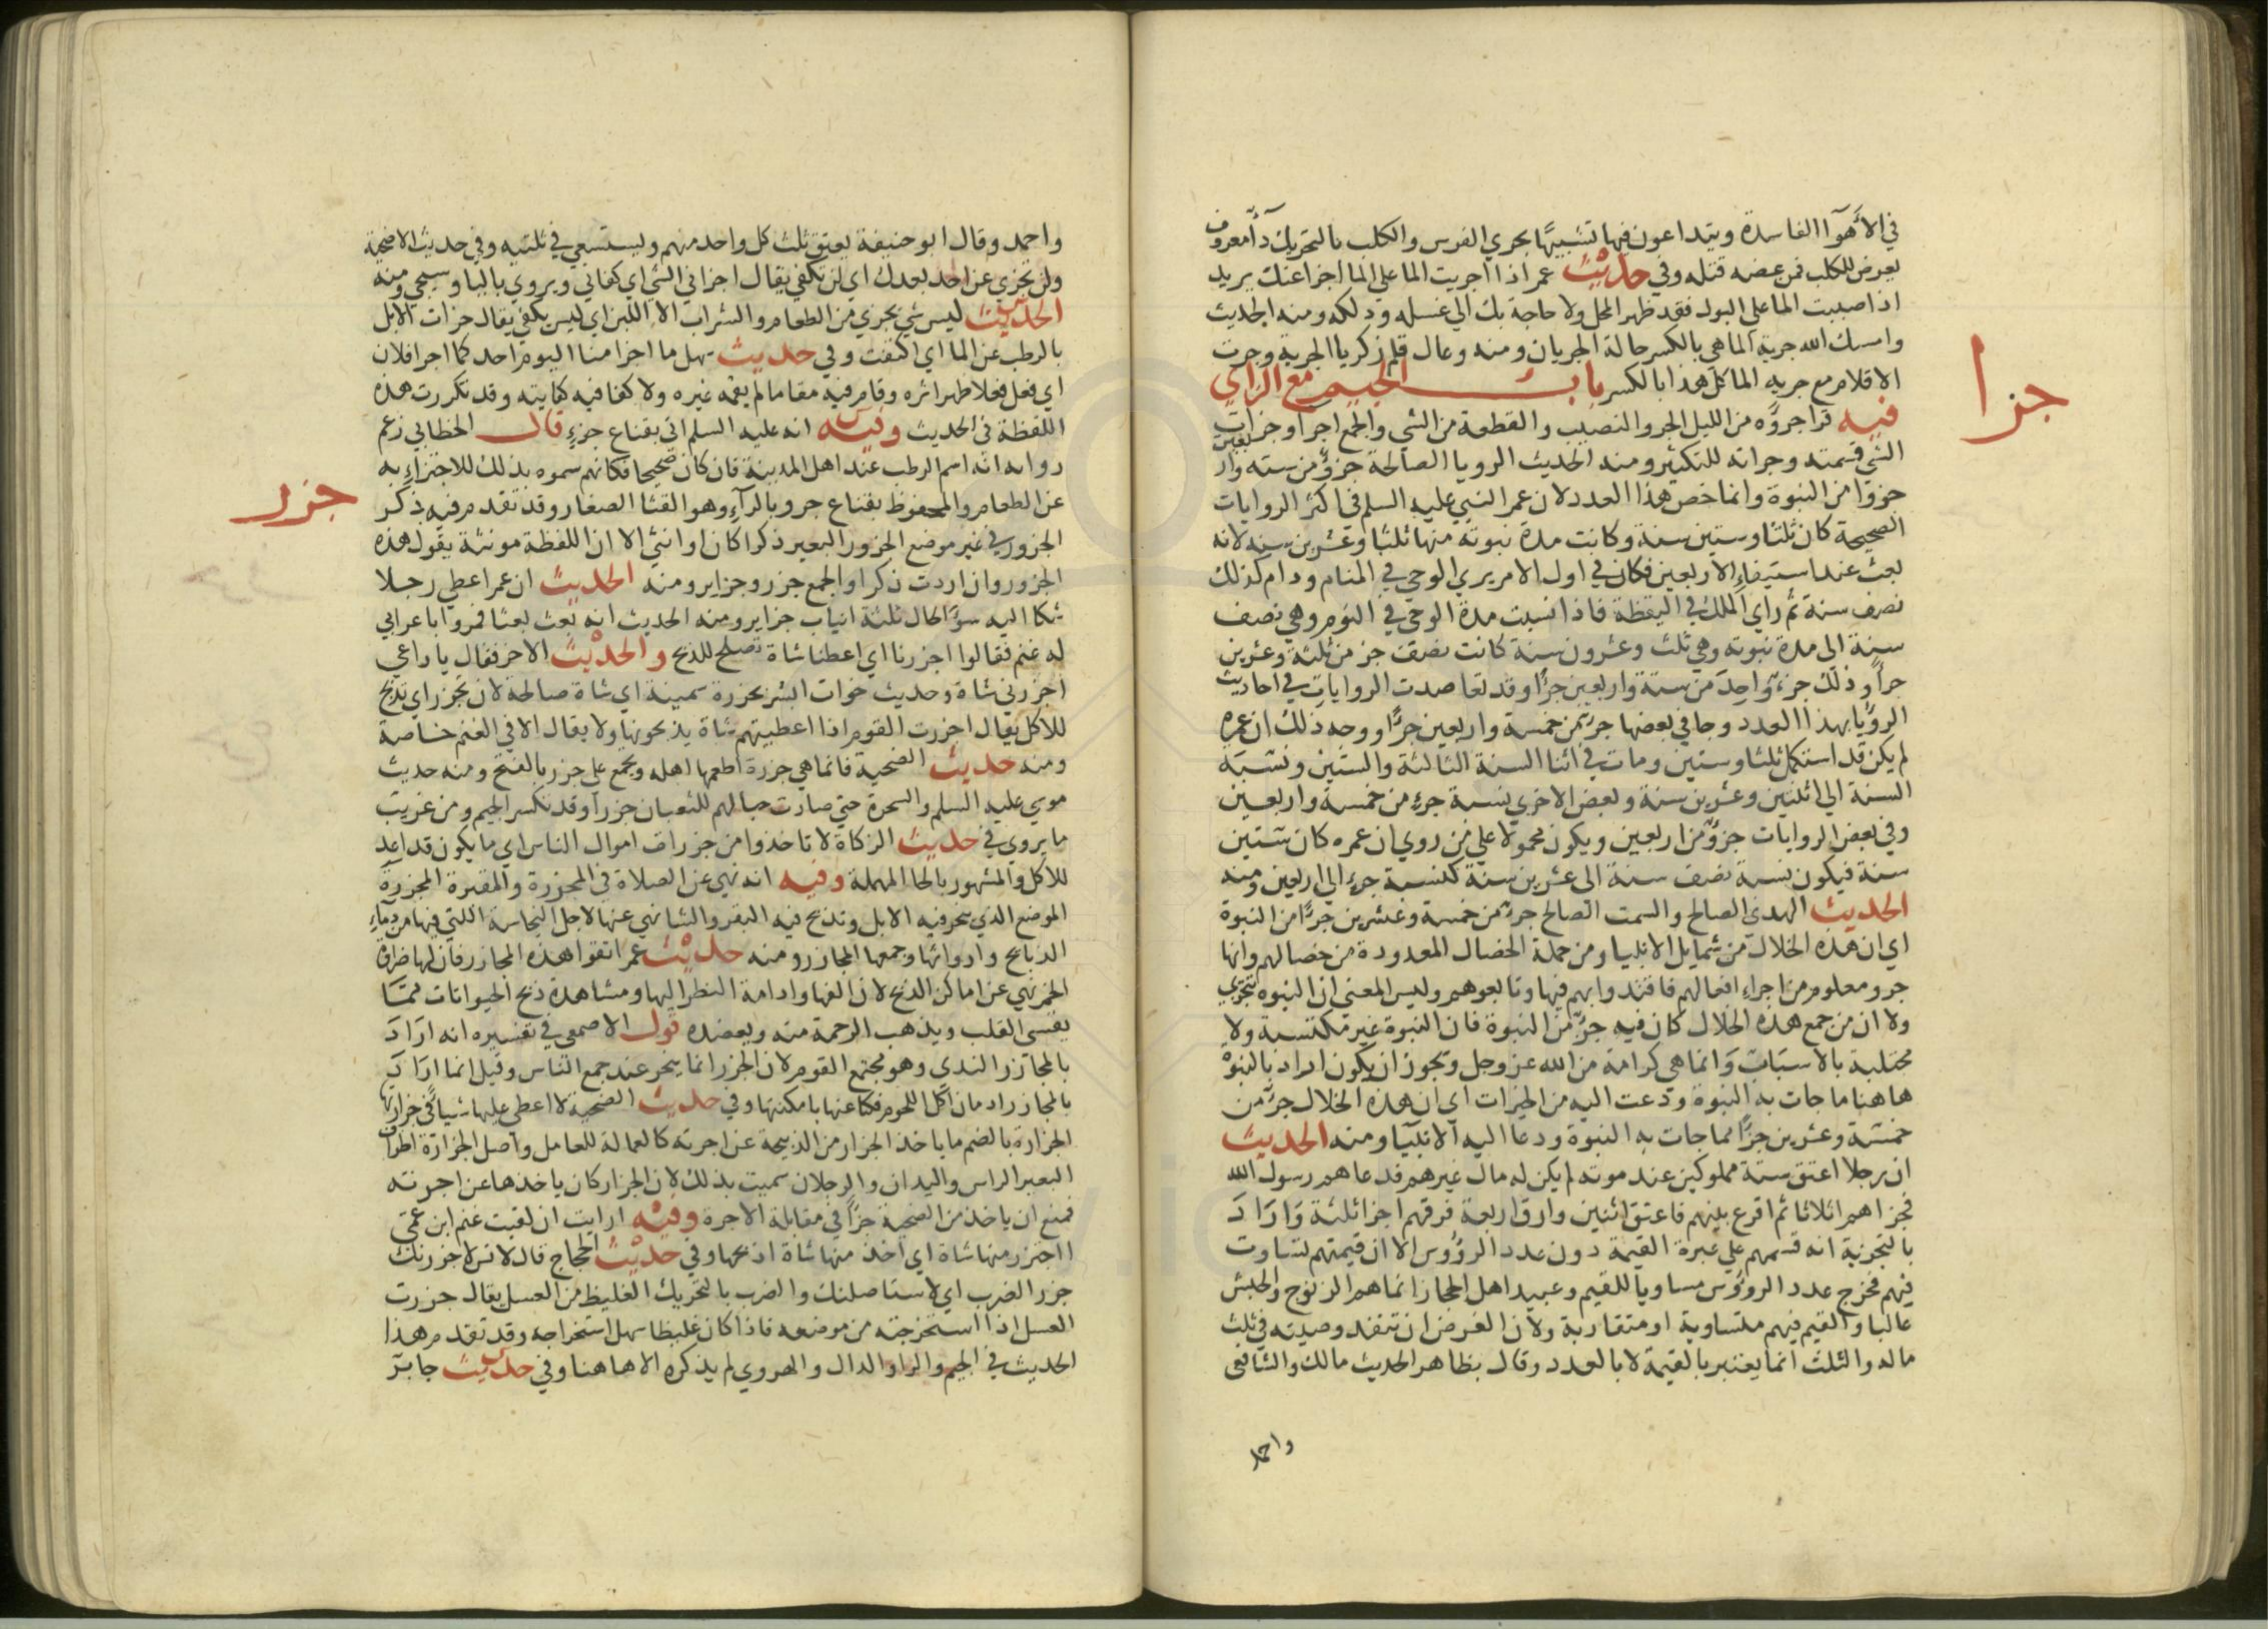 في الأهوآ الفاسدة ويتداعون فيها تشبيهًا بجري الفرس والكلب بالتحريك دآ معروف
يعرض للكلب فمن عضه قتله وفي حديث عمر اذا اجريت الما على الما اجزا عنك يريد
اذا صببت الما على البول فقد طهر المحل ولا حاجة بك الي غسله ودلكه ومنه الحديث
وامسك الله جرية الما هي بالكسر حالة الجريان ومنه وعال قلم زكريا الجرية وجرت
الاقلام مع جرية الما كل هذا بالكسر باب الجيم مع الزاي
جزا
فيه قرا جزؤه من الليل الجزو النصيب والقطعة من الشي والجمع اجزا وجزات
الشي قسمته وجزاته للتكثير ومنه الحديث الرويا الصالحة جزؤ من سته واربعين
جزوا من النبوة وانما خص هذا العدد لان عمر النبي عليه السلم في اكثر الروايات
الصحيحة كان ثلثا وستين سنة وكانت مدة نبوته منها ثلثا وعشرين سنه لانه
بعث عند استيفاء الاربعين فكان في اول الامر يري الوحي في المنام ودام كذلك
نصف سنة ثم راي الملك في اليقظة فاذا نسبت مدة الوحي في النوم وهي نصف
سنة الى مدة نبوته وهي ثلث وعشرون سنة كانت نصف جز من ثلثة وعشرين
جزأ وذلك جزء واحد من ستة واربعين جزأ وقد تعاضدت الروايات في احاديث
الرؤيا بهذا العدد وجا في بعضها جزء من خمسة واربعين جزًا ووجه ذلك ان عمره
لم يكن قد استكمل ثلثا وستين ومات في اثنا السنة الثالثة والستين ونسبة
السنة الي اثنين وعشرين سنة وبعض الاخري نسبة جزء من خمسة واربعين
وفي بعض الروايات جزؤ من اربعين ويكون محمولا علي من روي ان عمره كان ستين
سنة فيكون نسبة نصف سنة الى عشرين سنة كنسبة جزء الي اربعين ومنه
الحديث الهدي الصالح والسمت الصالح جزء من خمسة وعشرين جزًا من النبوة
اي ان هذه الخلال من شمايل الانبيا ومن جملة الخصال المعدودة من خصالهم وانها
جزو معلوم من اجزاء افعالهم فاقتدوا بهم فيها وتابعوهم وليس المعني ان النبوه تتجزي
ولا ان من جمع هذه الخلال كان فيه جزء من النبوة فان النبوة غير مكتسبة ولا
مجتلبة بالاسباب وانما هي كرامة من الله عز وجل ويجوز ان يكون اراد بالنبوة
هاهنا ما جات به النبوة ودعت اليه من الخيرات اي ان هذه الخلال جزء من
خمسة وعشرين جزًا مما جات به النبوة ودعا اليه الانبيا ومنه الحديث
ان رجلا اعتق ستة مملوكين عند موته لم يكن له مال غيرهم فدعاهم رسول الله
فجزاهم اثلاثا ثم اقرع بينهم فاعتق اثنين وارق اربعة فرقهم اجزا ثلثة واراد
بالتجزية انه قسمهم علي عبرة القيمة دون عدد الرؤوس الا ان قيمتهم تساوت
فيهم فخرج عدد الرووس مساويا للقيم وعبيد اهل الحجاز انما هم الزنوج والحبش
غالبا والقيم فيهم متساوية او متقاربة ولان الغرض ان تنفد وصيته في ثلث
ماله والثلث انما يعتبر بالقيمة لا بالعدد وقال بظاهر الحديث مالك والشافعي
واحمد
واحمد وقال ابو حنيفة يعتق ثلث كل واحد منهم ويستسعي في ثلثيه وفي حديث الاضحية
ولن تجزي عن احد بعدك اي لن تكفي يقال اجزاني الشي اي كفاني ويروي باليا وسيجي ومنه
الحديث ليس شي يجزي من الطعام والشراب الا اللبن اي ليس يكفي يقال جزات الابل
بالرطب عن الما اي اكتفت وفي حديث سهل ما اجزا منا اليوم احد كما اجزا فلان
اي فعل فعلا ظهر اثره وقام فيه مقاما لم يقمه غيره ولا كفا فيه كفايته وقد تكررت هذه
اللفظة في الحديث وفيه انه عليه السلم اتي بقناع جزء قال الخطابي زعم
روايه انه اسم الرطب عند اهل المدينة فان كان صحيحا فكانهم سموه بذلك للاجتزاء به
عن الطعام والمحفوظ بقناع جرو بالرآء وهو القثا الصغار وقد تقدم فيه ذكر
جزر
الجزور في غير موضع الجزور البعير ذكرا كان او انثي الا ان اللفظة مونثة يقول هذه
الجزور وان اردت ذكرا والجمع جزر وجزاير ومنه الحديث ان عمر اعطي رجلا
شكا اليه سوٓ الحال ثلثة انياب جزاير ومنه الحديث انه بعث بعثا فمروا باعرابي
له غنم فقالوا اجزرنا اي اعطنا شاة تصلح للذبح والحديث الاخر فقال يا راعي
اجزرني شاة وحديث خوات ابشر بجزرة سمينة اي شاة صالحة لان تجزر اي تذبح
للاكل يقال اجزرت القوم اذا اعطيتهم شاة يذبحونها ولا يقال الا في الغنم خاصة
ومنه حديث الضحية فانما هي جزرة اطعمها اهله ويجمع علي جزر بالفتح ومنه حديث
موسي عليه السلم والسحرة حتي صارت حبالهم للثعبان جزرا وقد تكسر الجيم ومن غريب
ما يروي في حديث الزكاة لا تاخذوا من جزرات اموال الناس اي ما يكون قد اعد
للاكل والمشهور بالحا المهملة وفيه انه نهي عن الصلاة في المجزرة والمقبرة المجزرة
الموضع الذي ينحر فيه الابل وتذبح فيه البقر والشا نهي عنها لاجل النجاسة اللتي فيها من دمآء
الذبايح وارواثها وجمعها المجازر ومنه حديث عمر اتقوا هذه المجازر فان لها ضراوة
الخمر نهي عن اماكن الذبح لان الفها وادامة النظر اليها ومشاهدة ذبح الحيوانات مما
يقسى القلب ويذهب الرحمة منه ويعضده قول الاصمعي في تفسيره انه اراد
بالمجازر الندي وهو مجتمع القوم لان الجزر انما ينحر عند جمع الناس وقيل انما اراد
بالمجازر ادمان اكل اللحوم فكنا عنها بامكنتها وفي حديث الضحية لا اعطي عليها شيا في جزارتها
الجزارة بالضم ما ياخذ الجزار من الذبيحة عن اجرته كالعمالة للعامل واصل الجزارة اطراف
البعير الراس واليدان والرجلان سميت بذلك لان الجزار كان ياخذها عن اجرته
فمنع ان ياخذ من الضحية جزًا في مقابلة الاجرة وفيه ارايت ان لقيت غنم ابن عمي
ااجتزر منها شاة اي اخذ منها شاة اذبحها وفي حديث الحجاج قال لانس لاجزرنك
جزر الضرب اي لاستاصلنك والضرب بالتحريك الغليظ من العسل يقال جزرت
العسل اذا استخرجته من موضعه فاذا كان غليظا سهل استخراجه وقد تقدم هذا
الحديث في الجيم والراوالدال والهروي لم يذكره الا هاهنا وفي حديث جابر